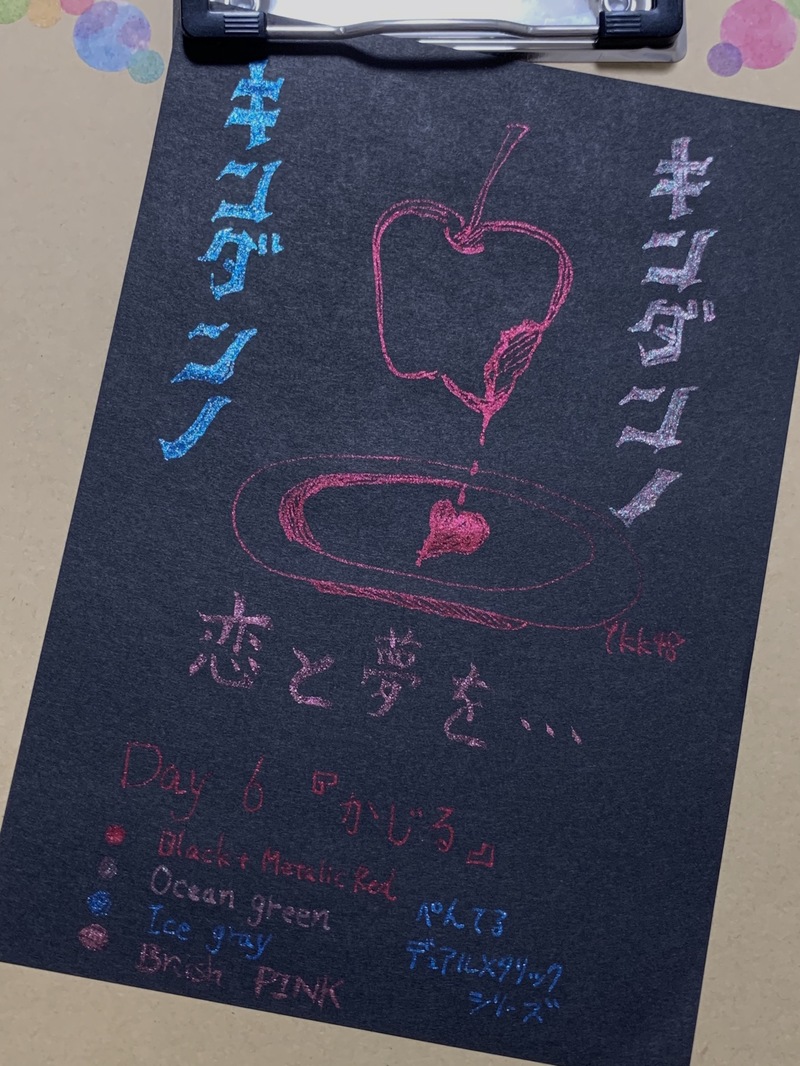 キンダンノ
キンダンノ
恋と夢を…
Day 6 『かじる』
Black + Metalic Red
Ocean green
Ice gray
Brish PINK
ぺんてる
デュアルメタリック
シリーズ